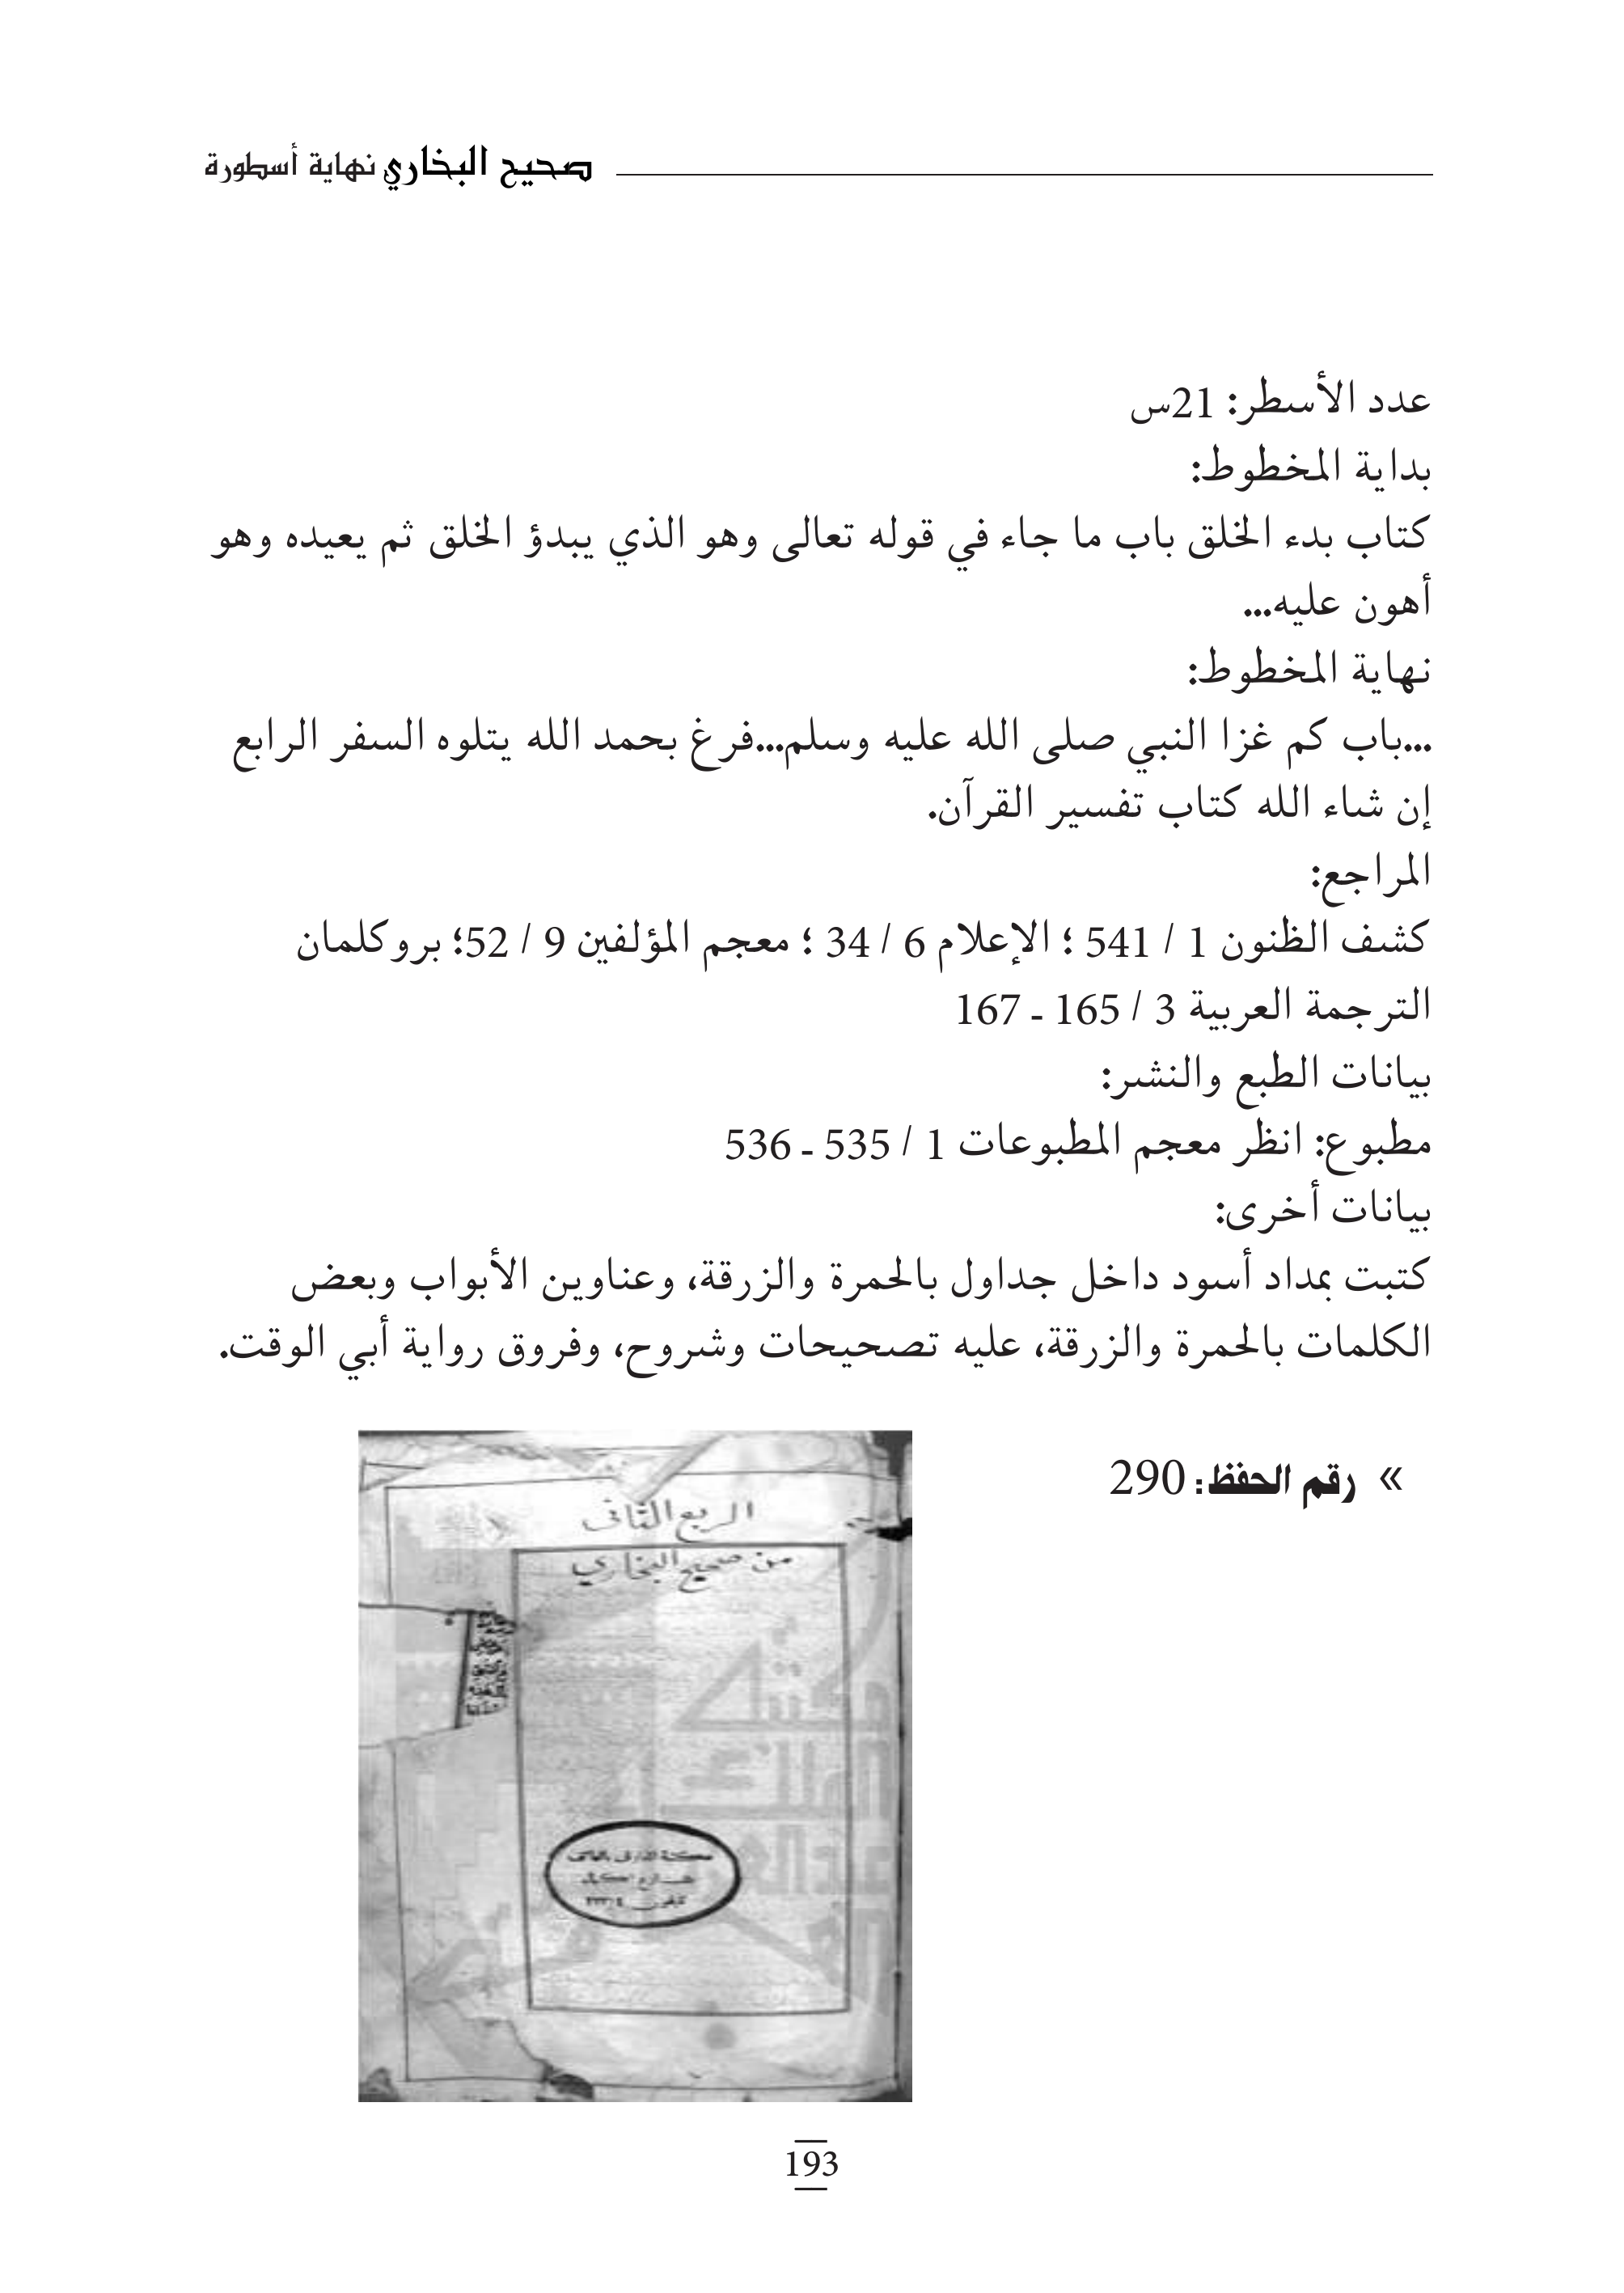 صحيح البخاري نهاية أسطورة
عدد الأسطر: 21س
بداية المخطوط:
كتاب بدء الخلق باب ما جاء في قوله تعالى وهو الذي يبدؤ الخلق ثم يعيده وهو
أهون عليه...
نهاية المخطوط:
...باب كم غزا النبي صلى الله عليه وسلم...فرغ بحمد الله يتلوه السفر الرابع
إن شاء الله كتاب تفسير القرآن.
المراجع:
كشف الظنون 1 / 541 ؛ الإعلام 6 / 34 ؛ معجم المؤلفين 9 / 52؛ بروكلمان
الترجمة العربية 3 / 165 ـ 167
بيانات الطبع والنشر:
مطبوع: انظر معجم المطبوعات 1 / 535 ـ 536
بيانات أخرى:
كتبت بمداد أسود داخل جداول بالحمرة والزرقة، وعناوين الأبواب وبعض
الكلمات بالحمرة والزرقة، عليه تصحيحات وشروح، وفروق رواية أبي الوقت.
» رقم الحفظ: 290
الربع الثاني
من صحيح البخاري
مكتبة الملك
193